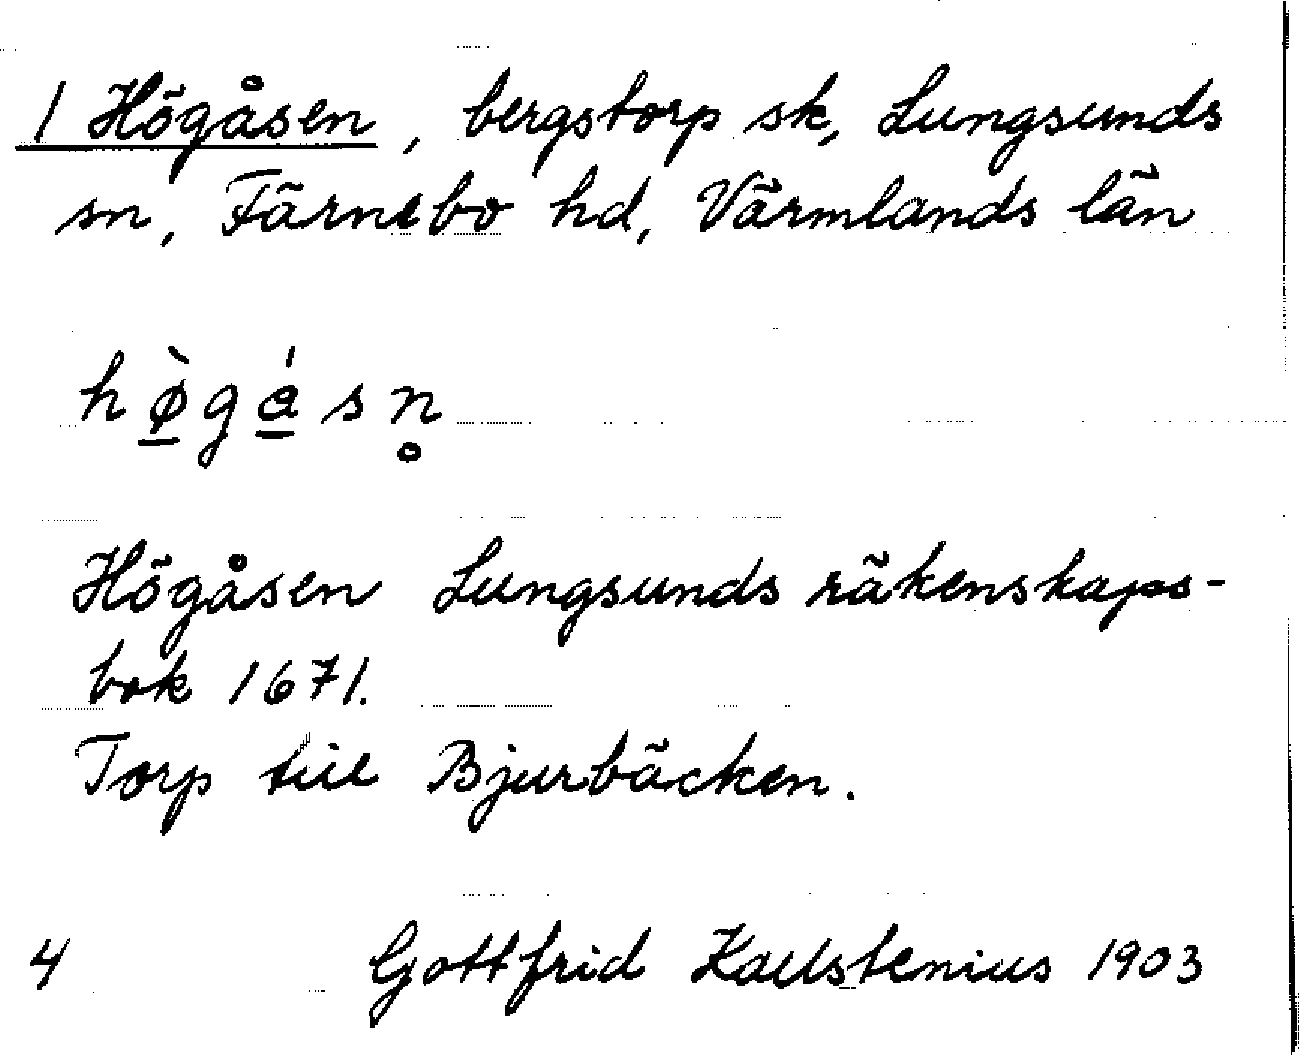 1 Högåsen, bergstorp sk, Lungsunds
sn, Färnebo hd, Värmlands län
hø̲̀gá̲sn̥
Högåsen Lungsunds räkenskaps-
bok 1671.
Torp till Bjurbäcken.
4 Gottfrid Kallstenius 1903